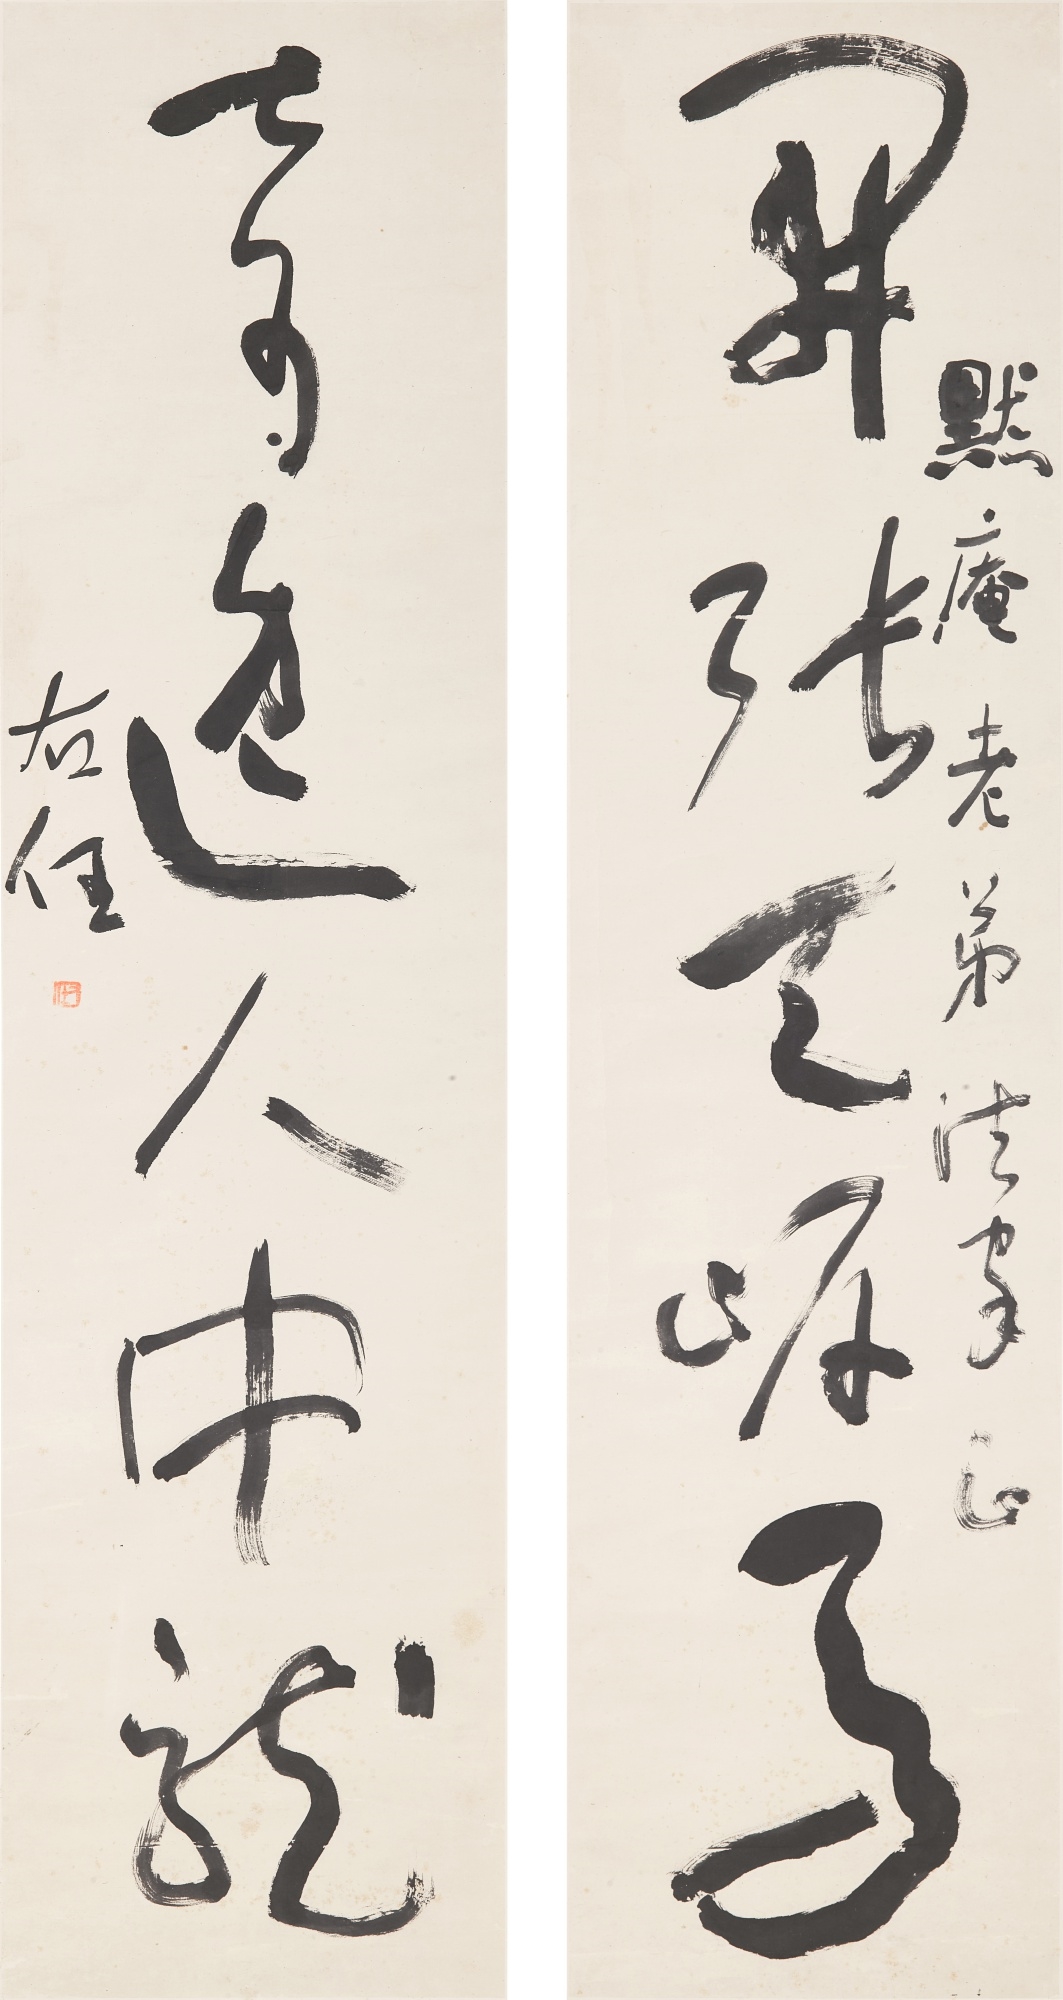 開張天岸馬
默庵老弟法家正
奇逸人中龍
右任